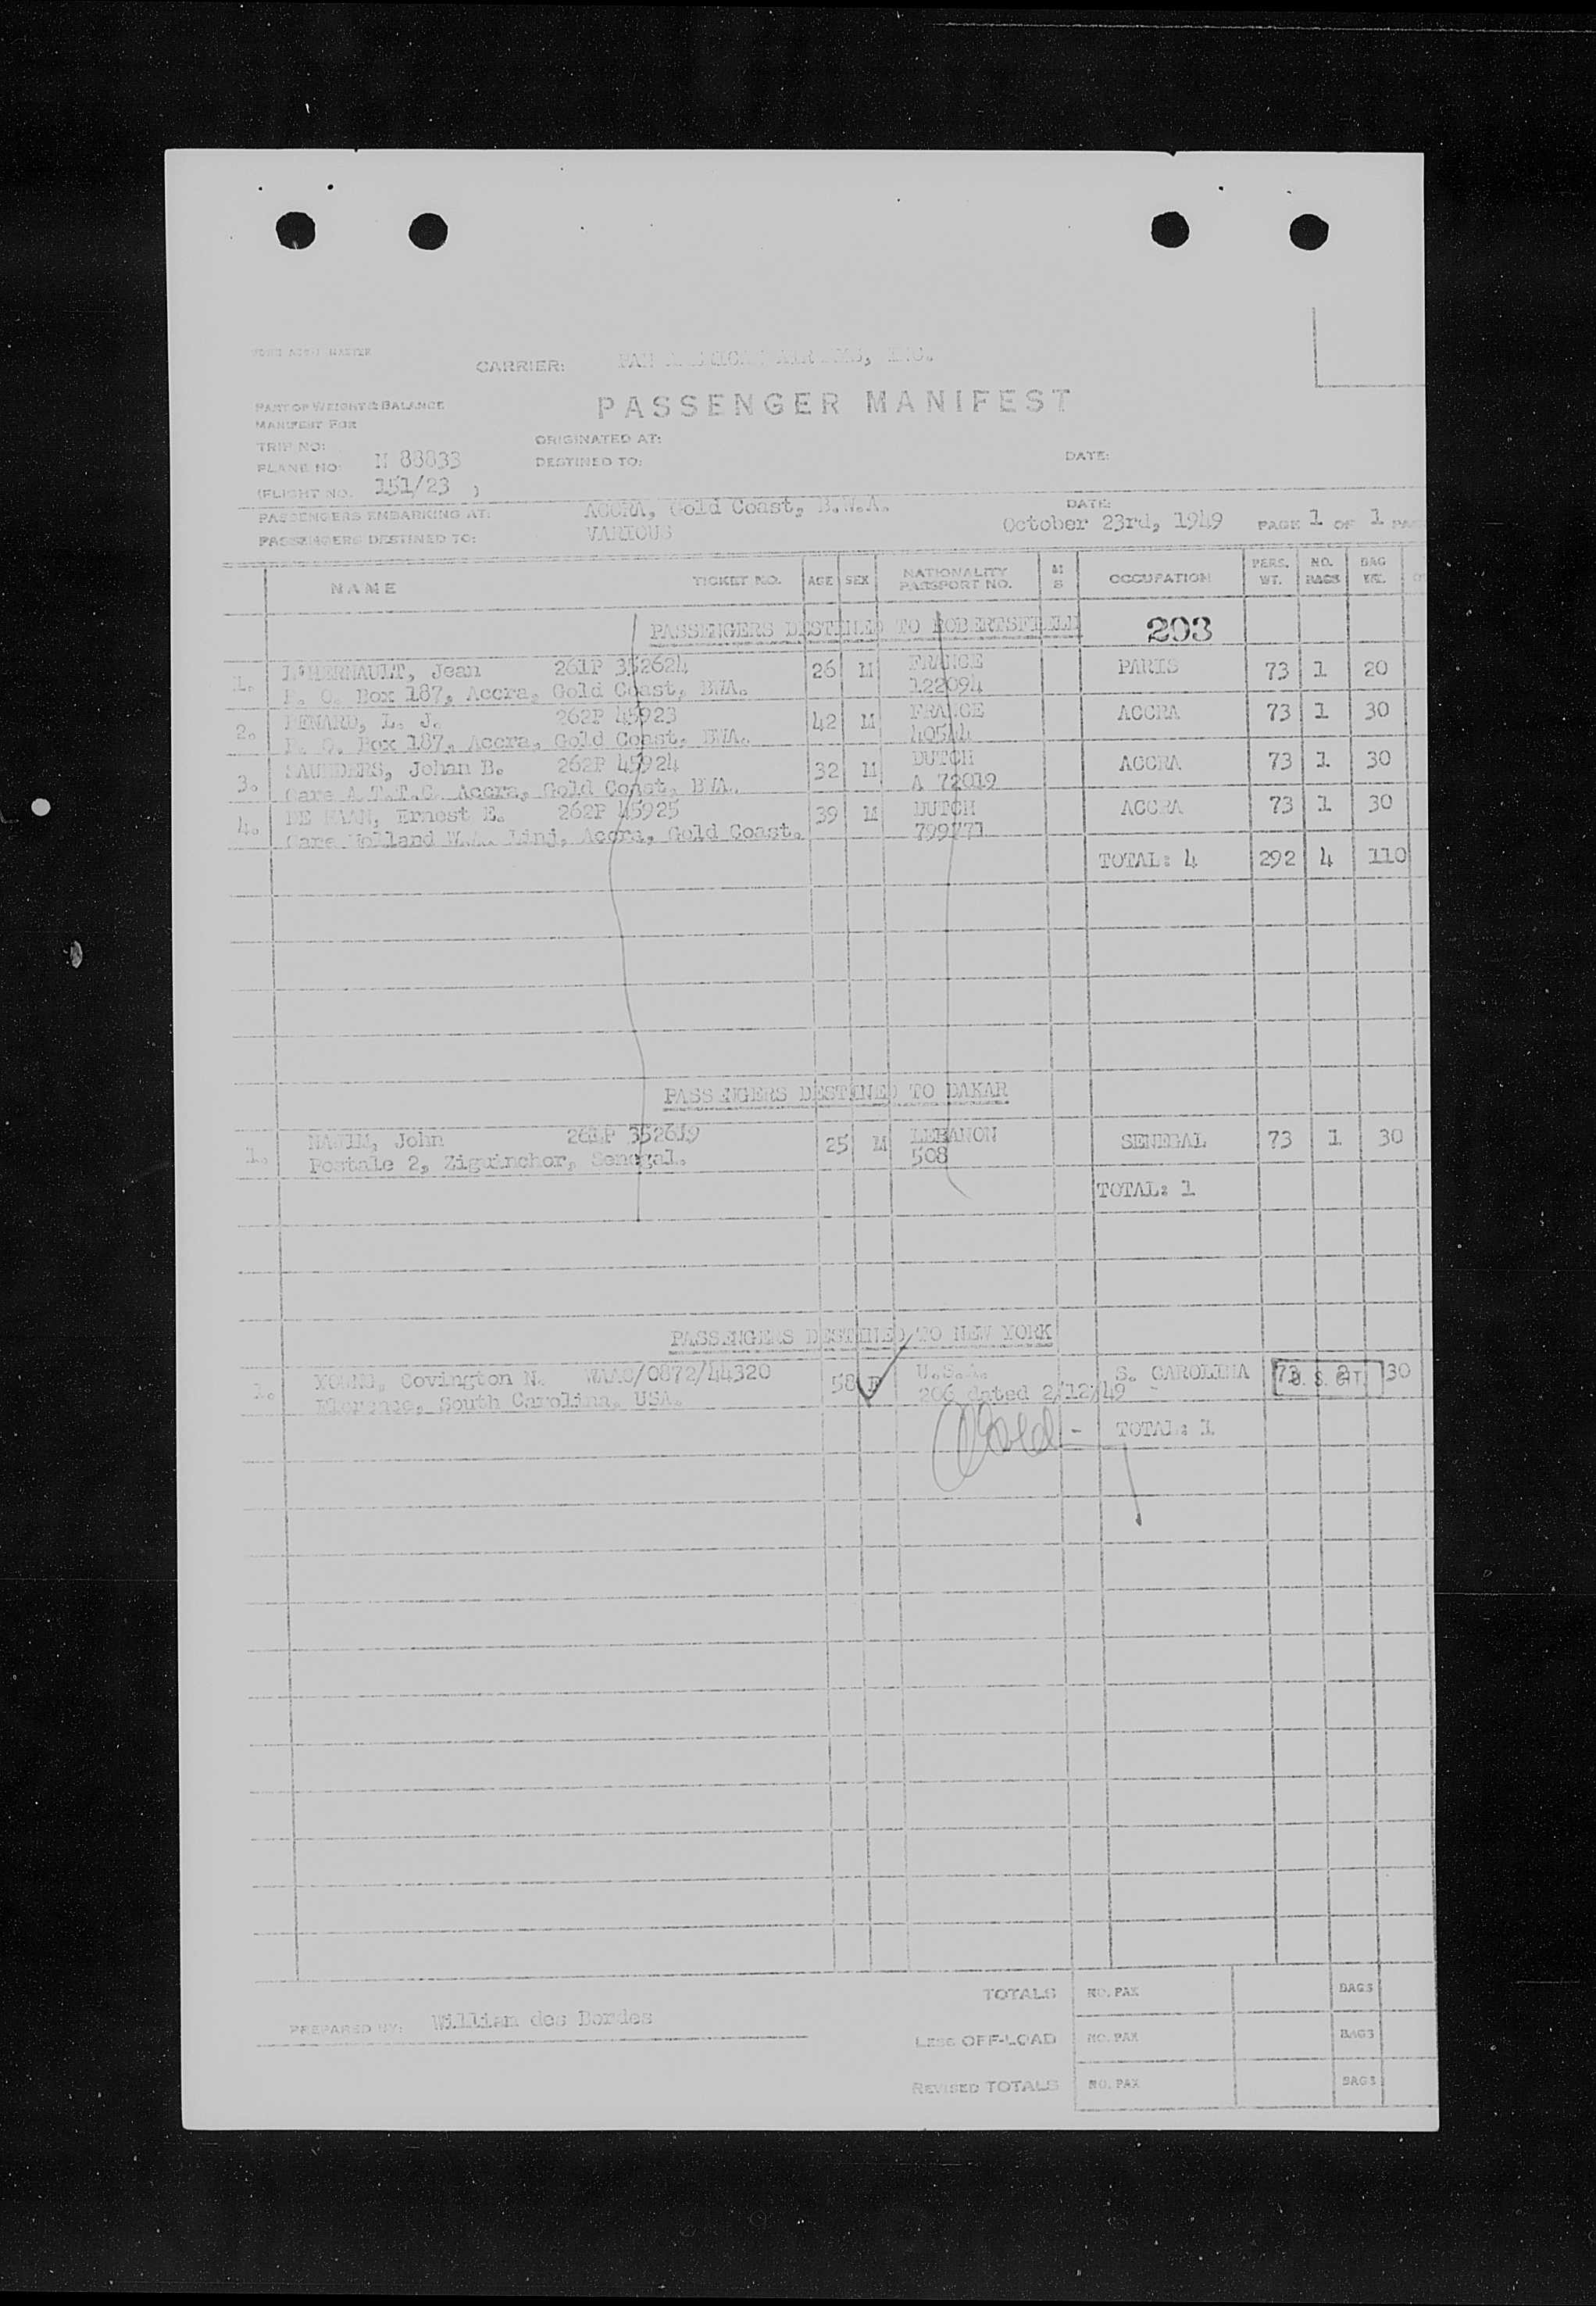 CARRIER: PAN AMERICAN AIRWAYS, INC.
PASSENGER MANIFEST
PART OF WEIGHT & BALANCE
MANIFEST FOR
TRIP NO:
ORIGINATED AT:
PLANE NO: N 88833
DESTINED TO:
DATE:
(FLIGHT NO. 151/23 )
PASSENGERS EMBARKING AT: ACCRA, Gold Coast, B.W.A.
DATE:
PASSENGERS DESTINED TO: VARIOUS
October 23rd, 1949 PAGE 1 OF 1
NAME TICKET NO. AGE SEX NATIONALITY PASSPORT NO. M S OCCUPATION PERS. WT. NO. BAGS BAG WT.
PASSENGERS DESTINED TO ROBERTSFIELD 203
1. L'HERNAULT, Jean 261P 352624 26 M FRANCE PARIS 73 1 20
P. O. Box 187, Accra, Gold Coast, BWA. 122094
2. PENARD, L. J. 262P 45923 42 M FRANCE ACCRA 73 1 30
P. O. Box 187, Accra, Gold Coast, BWA. 40544
3. SAUNDERS, Johan B. 262P 45924 32 M DUTCH ACCRA 73 1 30
Care A.T.T.C. Accra, Gold Coast, BWA. A 72019
4. DE HAAN, Ernest E. 262P 45925 39 M DUTCH ACCRA 73 1 30
Care Holland W.A. Linj, Accra, Gold Coast. 799771
TOTAL: 4 292 4 110
PASSENGERS DESTINED TO DAKAR
1. John 261P 352619 25 M LEBANON SENEGAL 73 1 30
Postale 2, Ziguinchor, Senegal. 508
TOTAL: 1
PASSENGERS DESTINED TO NEW YORK
1. YOUNG, Covington N. 0872/44320 58 F U.S.A. S. CAROLINA 73 U. S. CIT. 30
Florence, South Carolina, USA. 206 dated 2/12/49
TOTAL: 1
TOTALS NO. PAX BAGS
PREPARED BY: William des Bordes
LESS OFF-LOAD NO. PAX BAGS
REVISED TOTALS NO. PAX BAGS